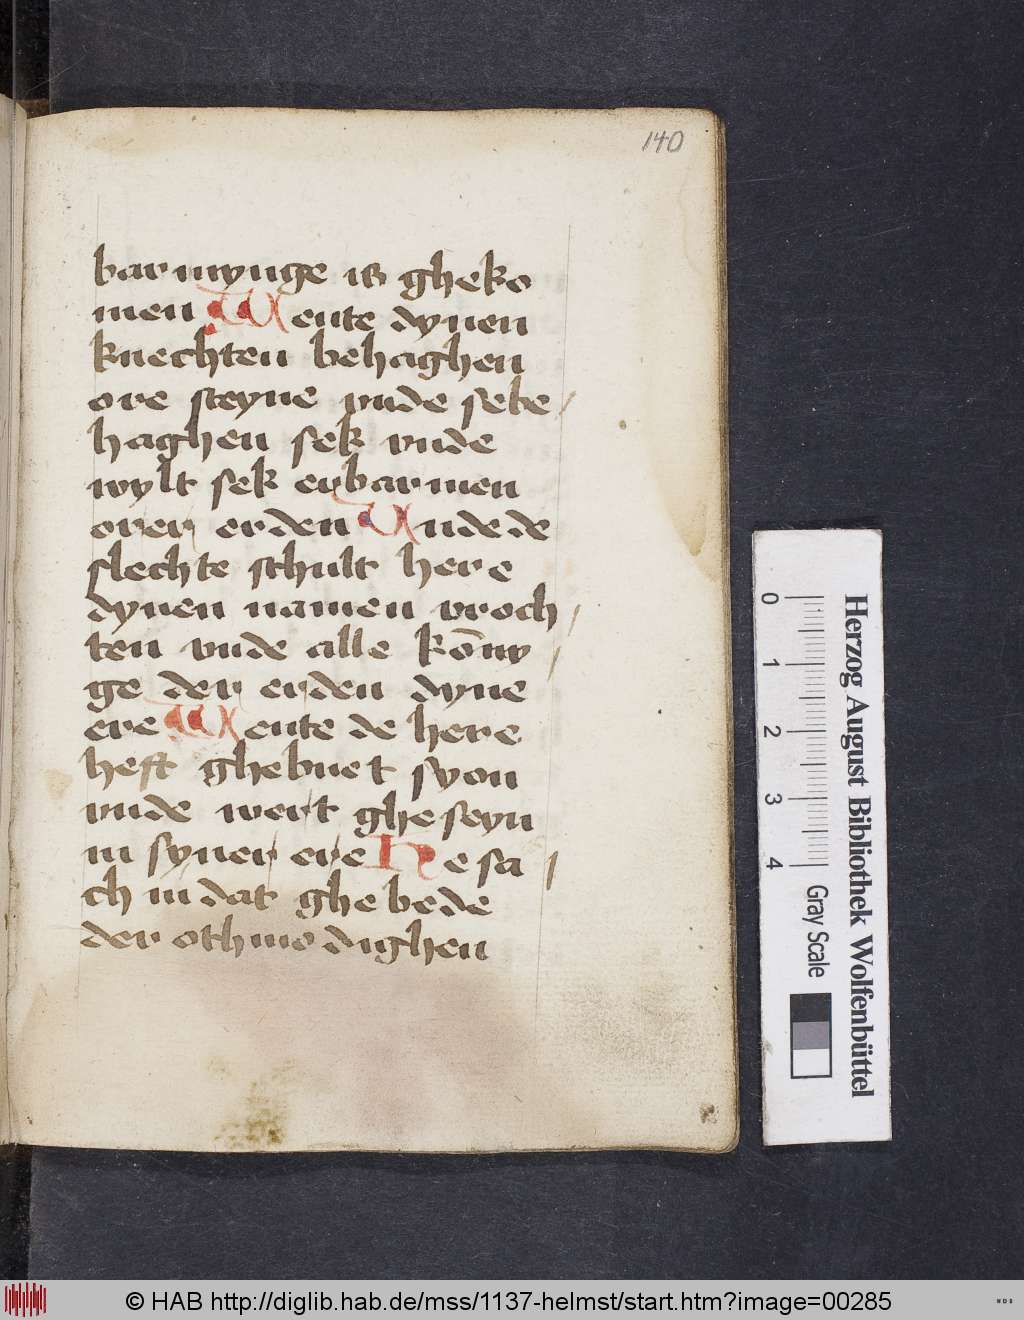 140
barmynge is gheko
men Wente dynen
knechten behaghen
ore steyne vnde sebe
haghen sek vnde
wylt sek erbarmen
orer erden Vnde de
slechte schult here
dynen namen vroch
ten vnde alle kōny
ge der erden dyne
ere Wente de here
heft ghebuet syon
vnde wert gheseyn
in syner ere He sa
ch in dat ghebede
der othmodighen
Herzog August Bibliothek Wolfenbüttel
0 1 2 3 4
Gray Scale
© HAB http://diglib.hab.de/mss/1137-helmst/start.htm?image=00285